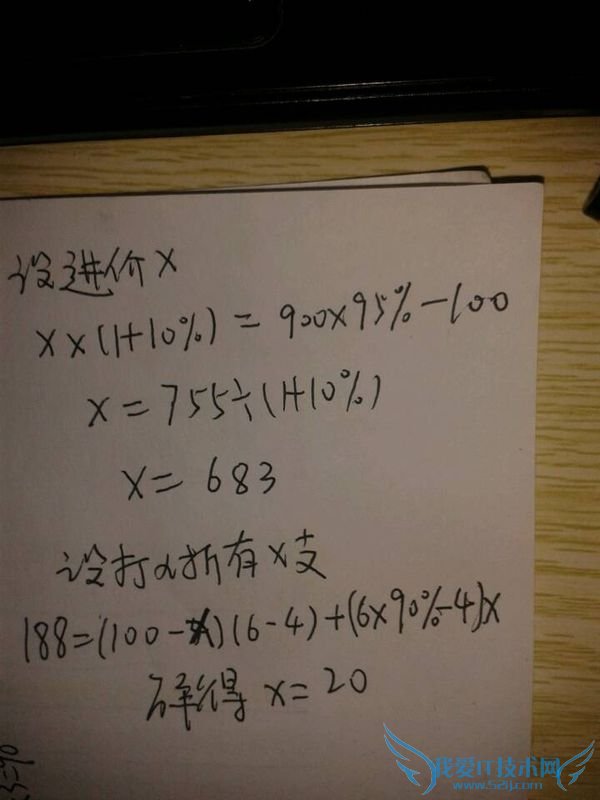 设进价x
x×(1+10%)=900×95%-100
x=755÷(1+10%)
x=683
设打α折有x支
188=(100-x)(6-4)+(6×90%-4)x
解得 x=20
我爱IT技术网
www.52ij.com